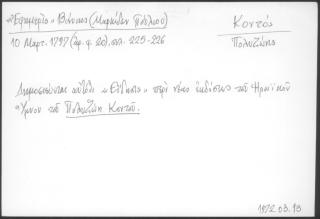 «Εφημερίς» Βιέννης (Μαρκίδων Πούλιου)
10 Μαρτ. 1797 (αρ. φ. 20), σελ. 225-226
Κοντός
Πολυζώης
Δημοσιεύεται αυτόθι «Είδησις» περί νέας εκδόσεως του Ηρωϊκού
Ύμνου του Πολυζώη Κοντού.
1972.03.93